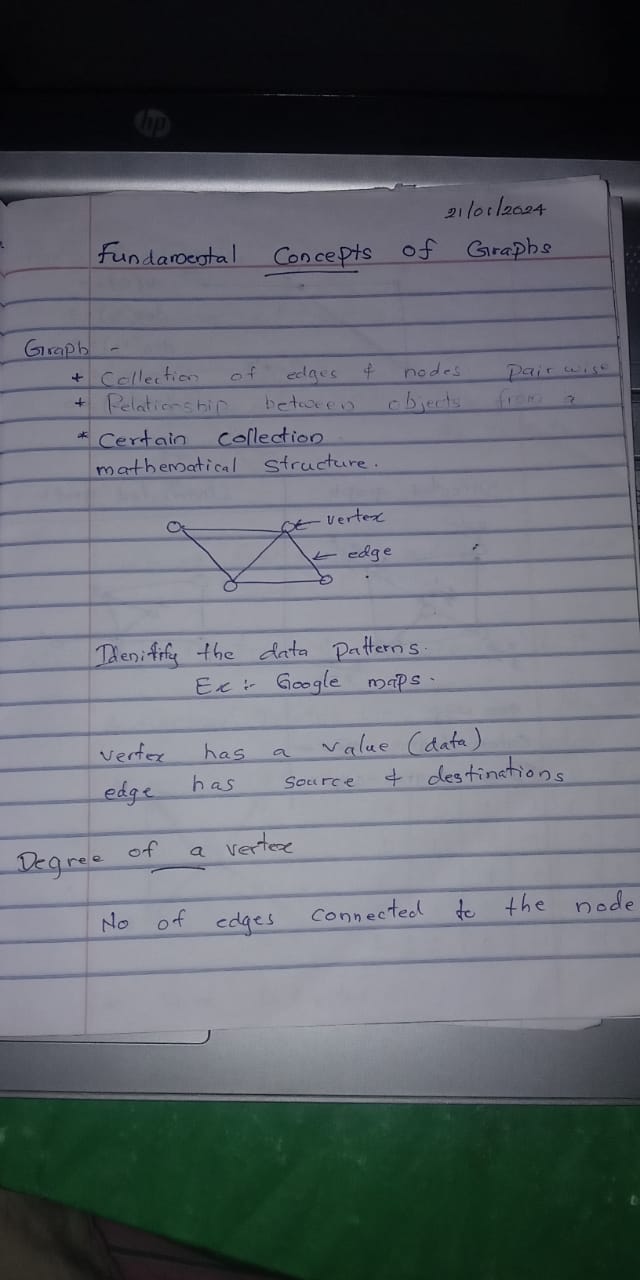 hp
21/01/2024
Fundamental Concepts of Graphs
Graph -
+ Collection of edges & nodes pair wise
+ Relationship between objects from a
* Certain collection
mathematical structure.
vertex
edge
Idenitify the data patterns.
Ex :- Google maps.
vertex has a value (data)
edge has source & destinations
Degree of a vertex
No of edges connected to the node